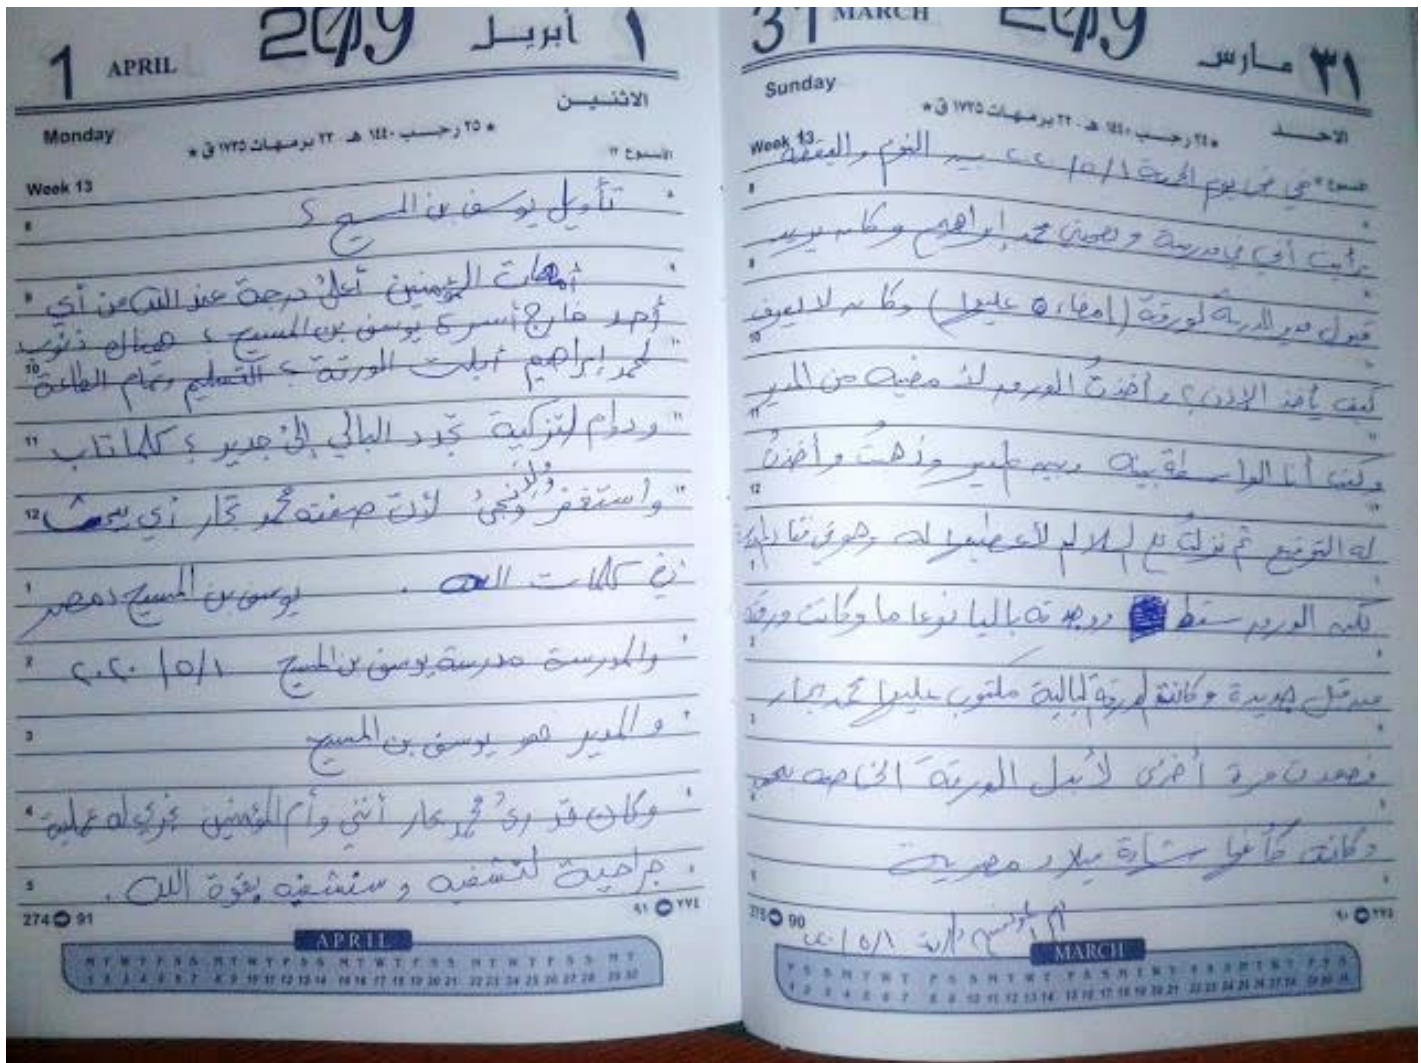 31 MARCH 2019 مارس ٣١
Sunday الاحد
* ٢٤ رجب ١٤٤٠ هـ - ٢٢ برمهات ١٧٣٥ ق *
Week 13
في يوم الجمعة ٢٠٢٠/٥/١ بين النوم واليقظة
رأيت أني في مدرسة ومعي محمد إبراهيم وكان يريد
قبول مدير المدرسة لورقة (إمضاءه عليها) وكان لا يعرف
كيف يأخذ الإذن؟ وأخذت الورقة من المدير
وكنت أنا الواسطة بينه وبين المدير وذهبت وأخذت
له التوقيع ثم نزلت على السلالم لأعطيها له وهو في
لكن الورقة سقط ووجدته باليا نوعا ما وكانت ورقة
من قبل جديدة وكانت الورقة البالية مكتوب عليها محمد بحار
فصعدت مرة أخرى لأبدل الورقة الخاصة
وكانت كأنها شهادة ميلاد مصرية
أم المؤمنين ٢٠٢٠/٥/١
275 90 ٩٠ ٢٧٥
MARCH
1 APRIL 2019 أبريل ١
Monday الاثنين
* ٢٥ رجب ١٤٤٠ هـ - ٢٣ برمهات ١٧٣٥ ق *
Week 13 الأسبوع ١٣
تأويل يوسف بن المسيح ؟
أمهات المؤمنين أعلى درجة عند الله من أي
أحد خارج أسرة يوسف بن المسيح ؟ هناك ذنوب
لمحمد إبراهيم أبلت الورقة ؟ التعليم وتمام الطاعة
ودوام التزكية تجدد البالي إلى جديد ؟ كلما تاب
واستغفر ونجى لأن صفته محمد بحار أي يبحث
في كلمات الله . يوسف بن المسيح
والمدرسة مدرسة يوسف بن المسيح ٢٠٢٠/٥/١
والمدير هو يوسف بن المسيح
وكان قد رؤى محمد بحار أنني وأم المؤمنين نجري له عملية
جراحية لنشفيه وسنشفيه بقوة الله .
274 91 ٩١ ٢٧٤
APRIL